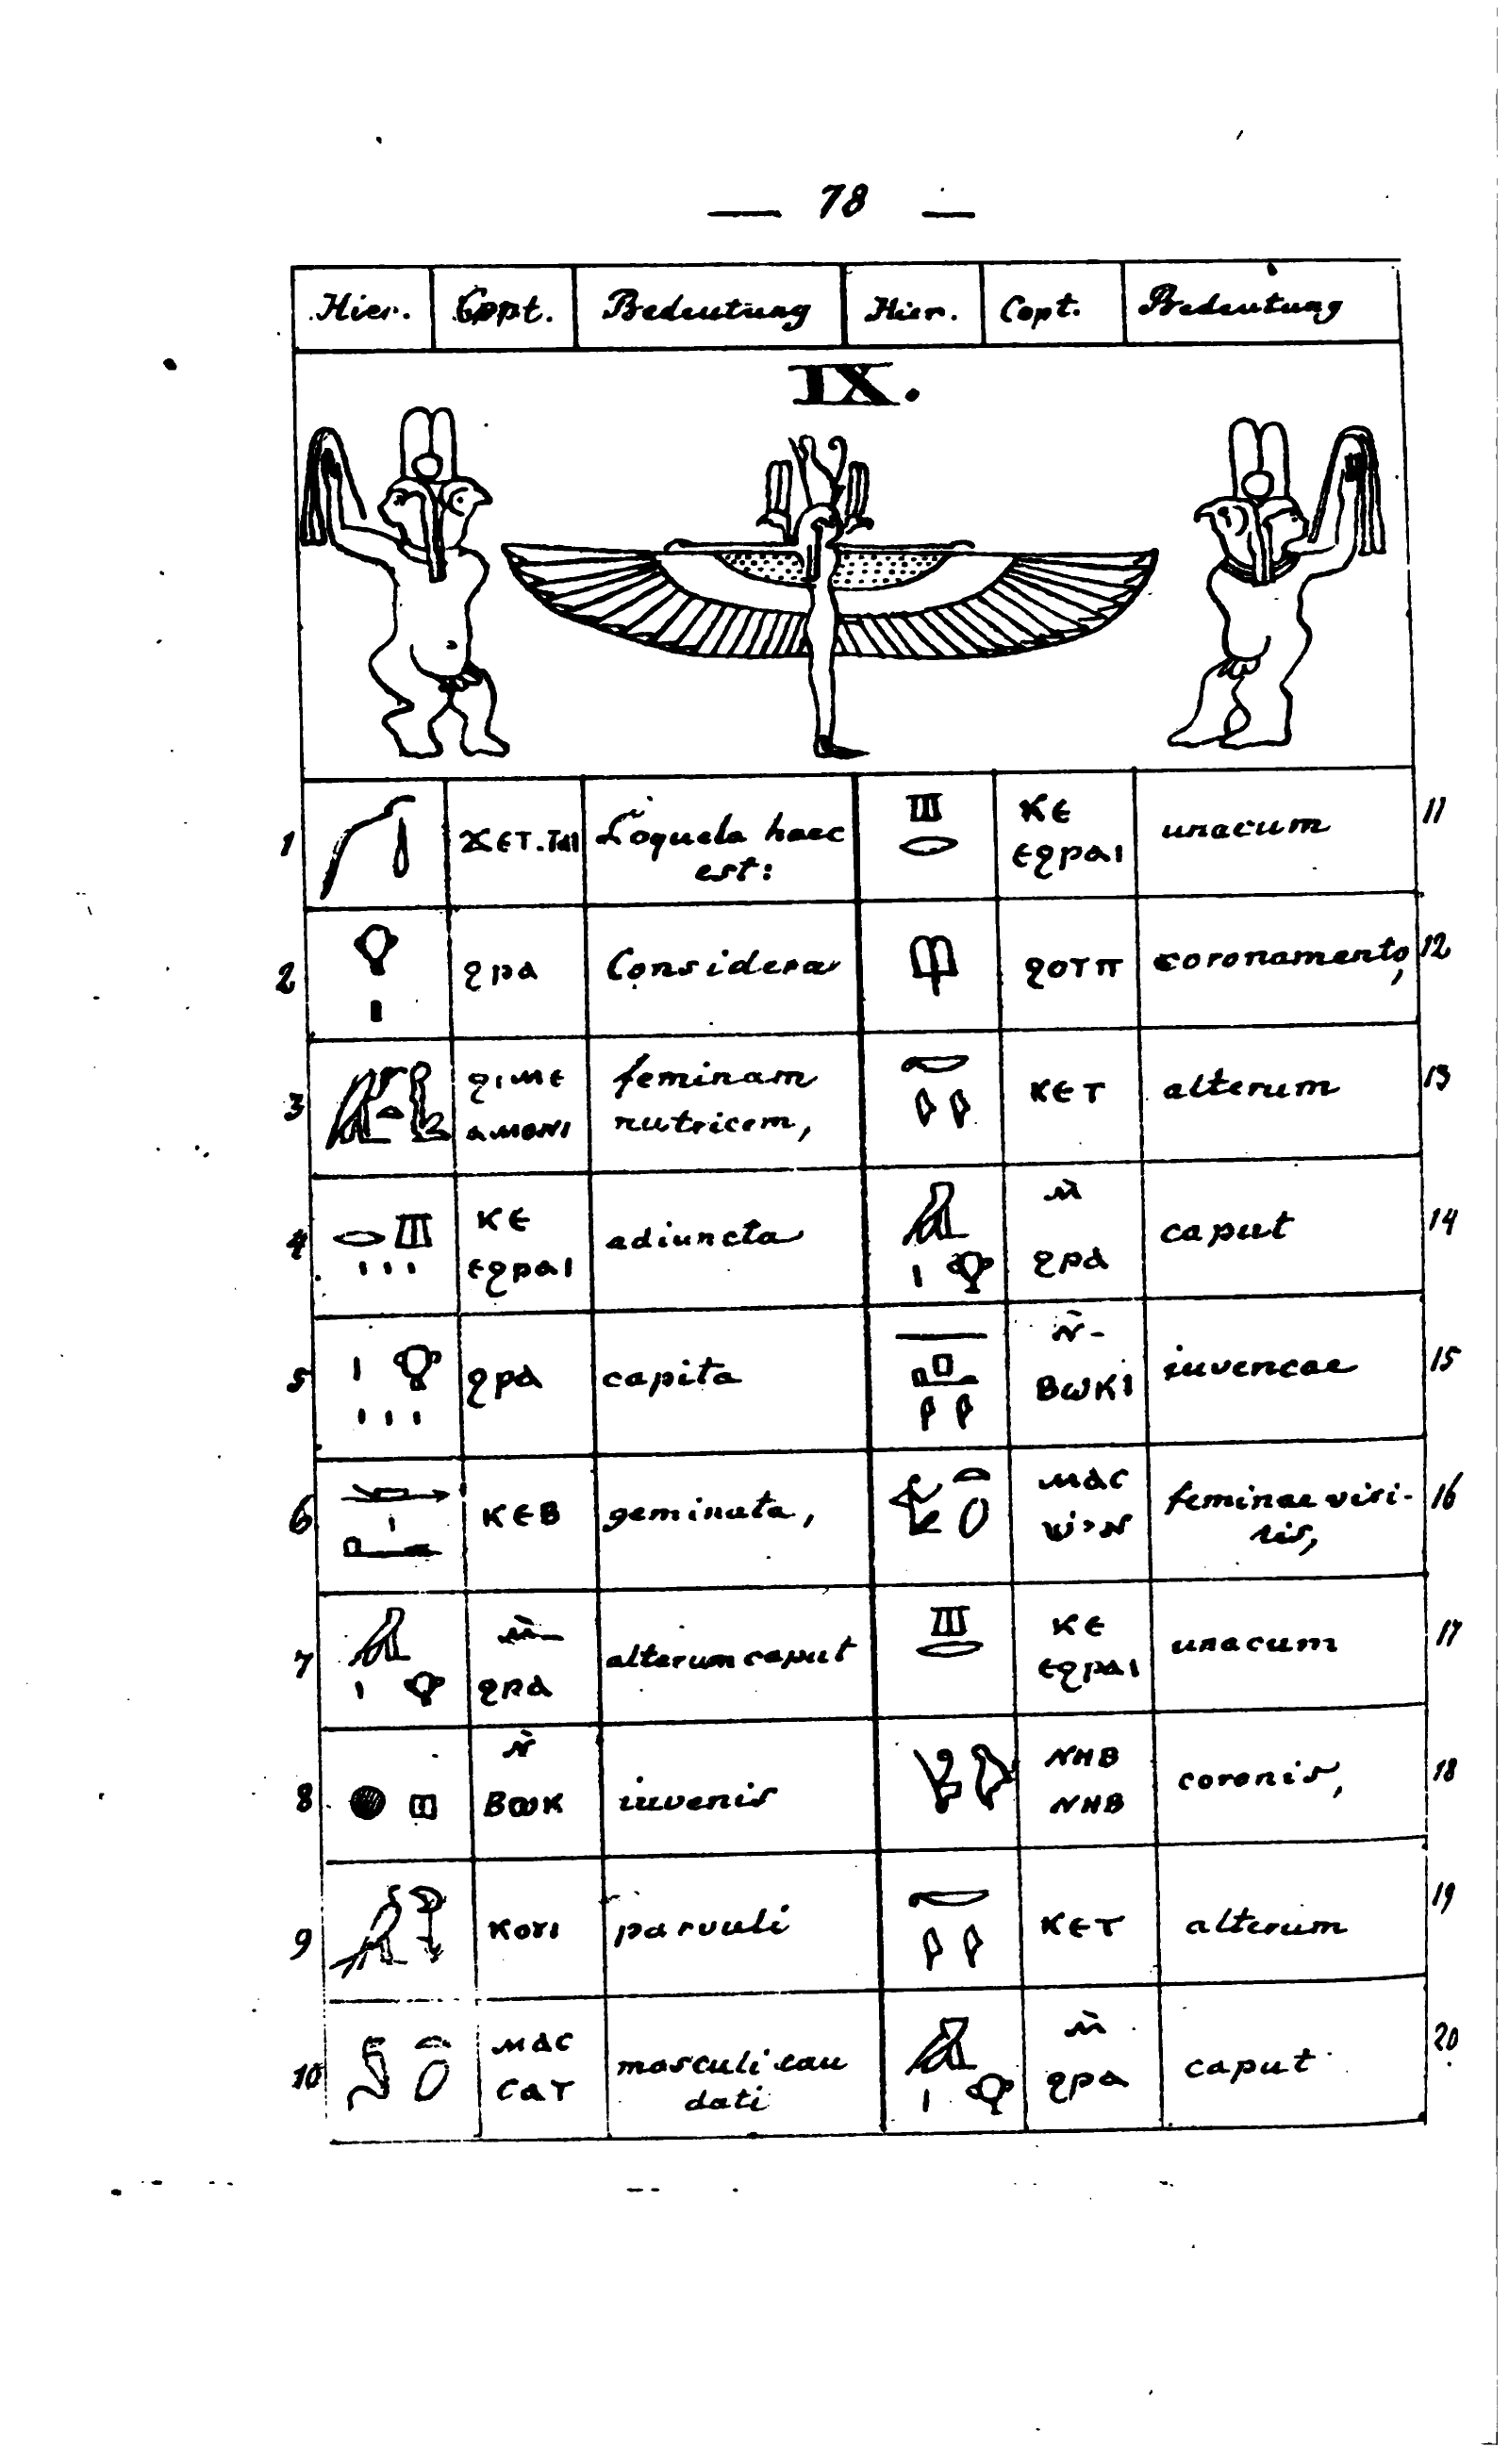 — 78 —
Hier. Copt. Bedeutung Hier. Copt. Bedeutung
IX.
1 Loquela haec
est:
ⲕⲉ
ⲉϩⲣⲁⲓ unacum 11
2 ϩⲣⲁ Considera
ϩⲟⲩⲡ coronamento, 12
3 ϩⲓⲙⲉ feminam
ⲁⲙⲟⲛⲓ nutricem,
ⲕⲉⲧ alterum 13
4 ⲕⲉ
ⲉϩⲣⲁⲓ adiuncta
ⲙ̀
ϩⲣⲁ caput 14
5 ϩⲣⲁ capita
ⲛ̀-
ⲃⲱⲕⲓ iuvencae 15
6 ⲕⲉⲃ geminata,
ⲙⲁⲥ feminae viri-
lis, 16
7 ⲙ̀
ϩⲣⲁ alterum caput
ⲕⲉ
ⲉϩⲣⲁⲓ unacum 17
8 ⲛ̀
ⲃⲱⲕ iuvenis
ⲛⲏⲃ
ⲛⲏⲃ coronis, 18
9 ⲕⲟⲩⲓ parvuli
ⲕⲉⲧ alterum 19
10 ⲙⲁⲥ masculi cau
ⲥⲁⲧ dati
ⲙ̀
ϩⲣⲁ caput 20